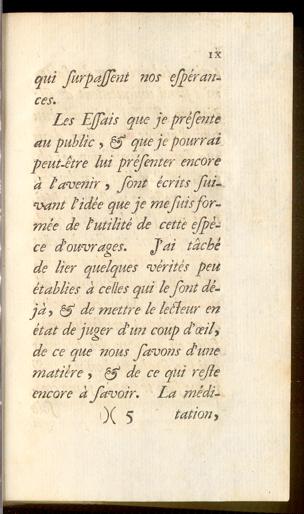 IX
qui ſurpaſſent nos eſpéran-
ces.
Les Eſſais que je préſente
au public, & que je pourrai
peut-être lui préſenter encore
à l'avenir, ſont écrits ſui-
vant l'idée que je me ſuis for-
mée de l'utilité de cette eſpè-
ce d'ouvrages. J'ai tâché
de lier quelques vérités peu
établies à celles qui le ſont dé-
jà, & de mettre le lecteur en
état de juger d'un coup d'œil,
de ce que nous ſavons d'une
matière, & de ce qui reſte
encore à ſavoir. La médi-
)( 5 tation,